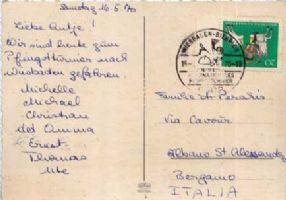 Samstag 16.5.70
Liebe Antje!
Wir sind heute zum
Pfingstturnier nach
Wiesbaden gefahren.
Michelle
Michael
Christian
Omma
Ernst
Thomas
Ute
WIESBADEN-BIEBRICH
20
Via Cavour
Albano St Alessandro
Bergamo
ITALIA